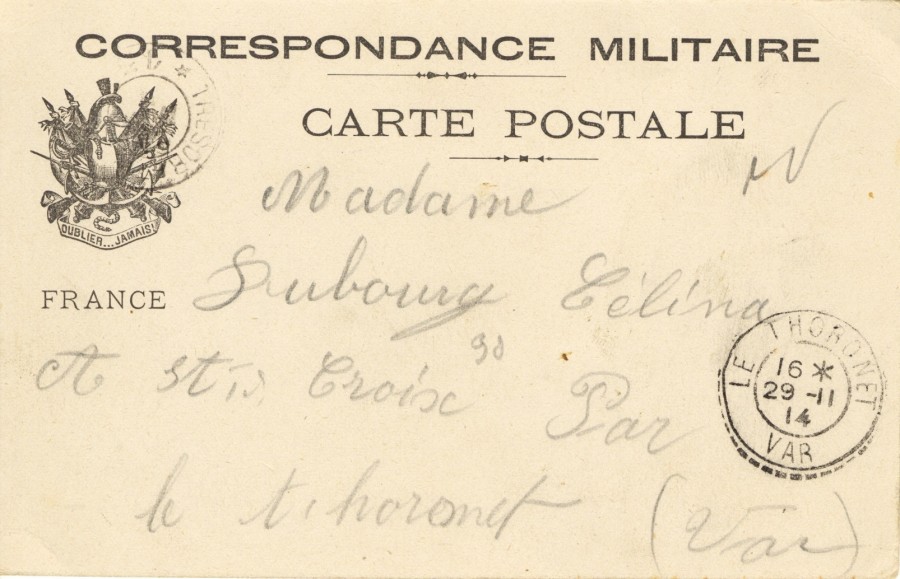 CORRESPONDANCE MILITAIRE
CARTE POSTALE
TRESOR
OUBLIER...JAMAIS!
FRANCE
Madame
Dubourg Célina
A Croix Par
le thoronet (Var)
LE THORONET
16 *
29 -11
14
VAR